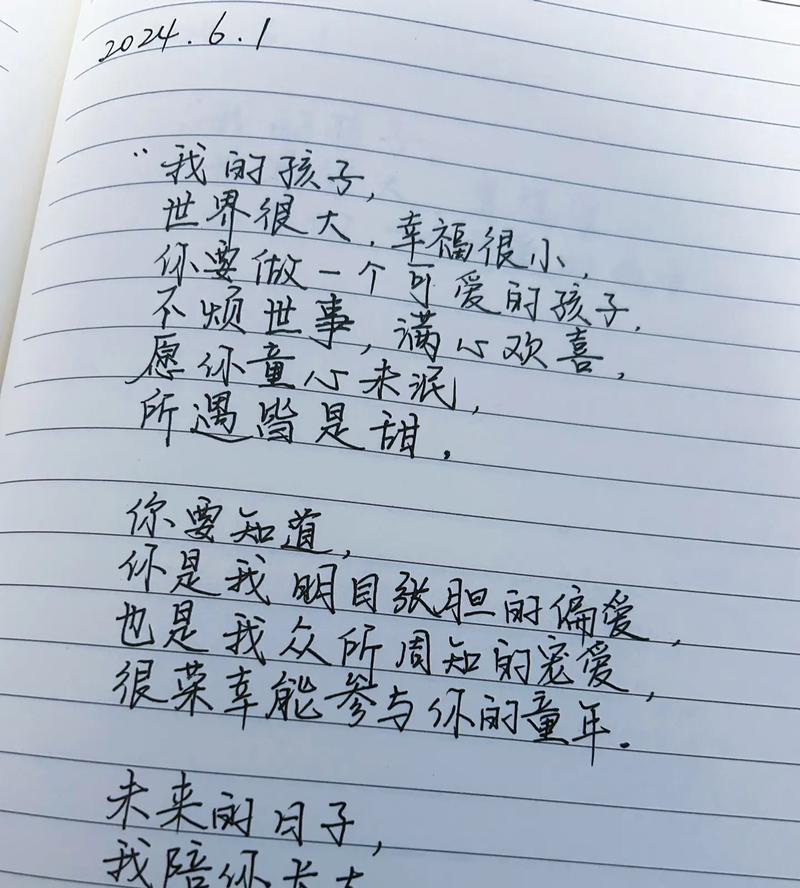 2024.6.1
"我的孩子,
世界很大,幸福很小,
你要做一个可爱的孩子,
不烦世事,满心欢喜,
愿你童心未泯,
所遇皆是甜.
你要知道,
你是我明目张胆的偏爱,
也是我众所周知的宠爱,
很荣幸能参与你的童年.
未来的日子,
我陪你长大